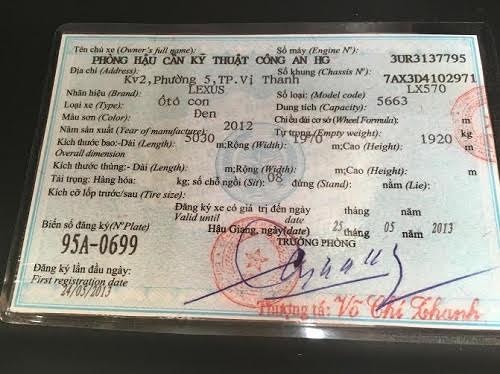 Tên chủ xe (Owner's full name): Số máy (Engine Nº): 3UR3137795
PHÒNG HẬU CẦN KỸ THUẬT CÔNG AN HG
Địa chỉ (Address): Số khung (Chassis Nº): 7AX3D4102971
Kv2, Phường 5, TP.Vị Thanh
Nhãn hiệu (Brand): LEXUS Số loại: (Model code) LX570
Loại xe (Type): Ôtô con Dung tích (Capacity): 5663
Màu sơn (Color): Đen Chiều dài cơ sở (Wheel Formula): m
Năm sản xuất (Year of manufacture): 2012 Tự trọng (Empty weight): kg
Kích thước bao:-Dài (Length): 5030 m;Rộng (Width): 1970 m;Cao (Height): 1920 m
Overall dimension
Kích thước thùng:- Dài (Length): m;Rộng (Width): m;Cao (Height): m
Tải trọng: Hàng hóa: kg; số chỗ ngồi (Sit): 08 đứng (Stand): nằm (Lie):
Kích cỡ lốp trước/sau (Tire size):
Đăng ký xe có giá trị đến ngày tháng năm
Valid until date
Biển số đăng ký(N°Plate) Hậu Giang, ngày(date) 25 tháng 05 năm 2013
95A-0699 TRƯỞNG PHÒNG
Đăng ký lần đầu ngày:
First registration date
24/05/2013
Thượng tá: Võ Chí Thanh